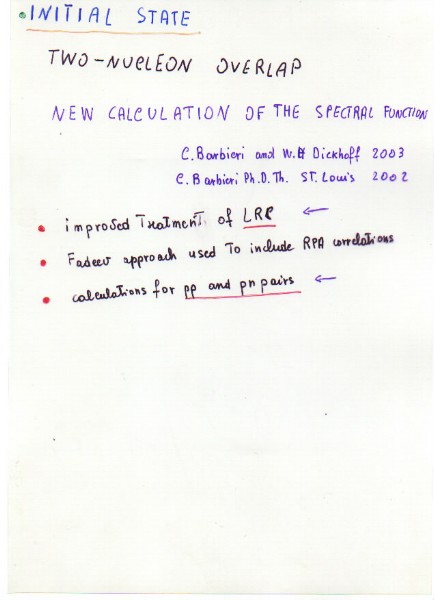 INITIAL STATE
TWO-NUCLEON OVERLAP
NEW CALCULATION OF THE SPECTRAL FUNCTION
C. Barbieri and W.H Dickhoff 2003
C. Barbieri Ph.D.Th. ST. Louis 2002
• improved Treatment of LRC ←
• Fadeev approach used To include RPA correlations
• calculations for pp and pn pairs ←